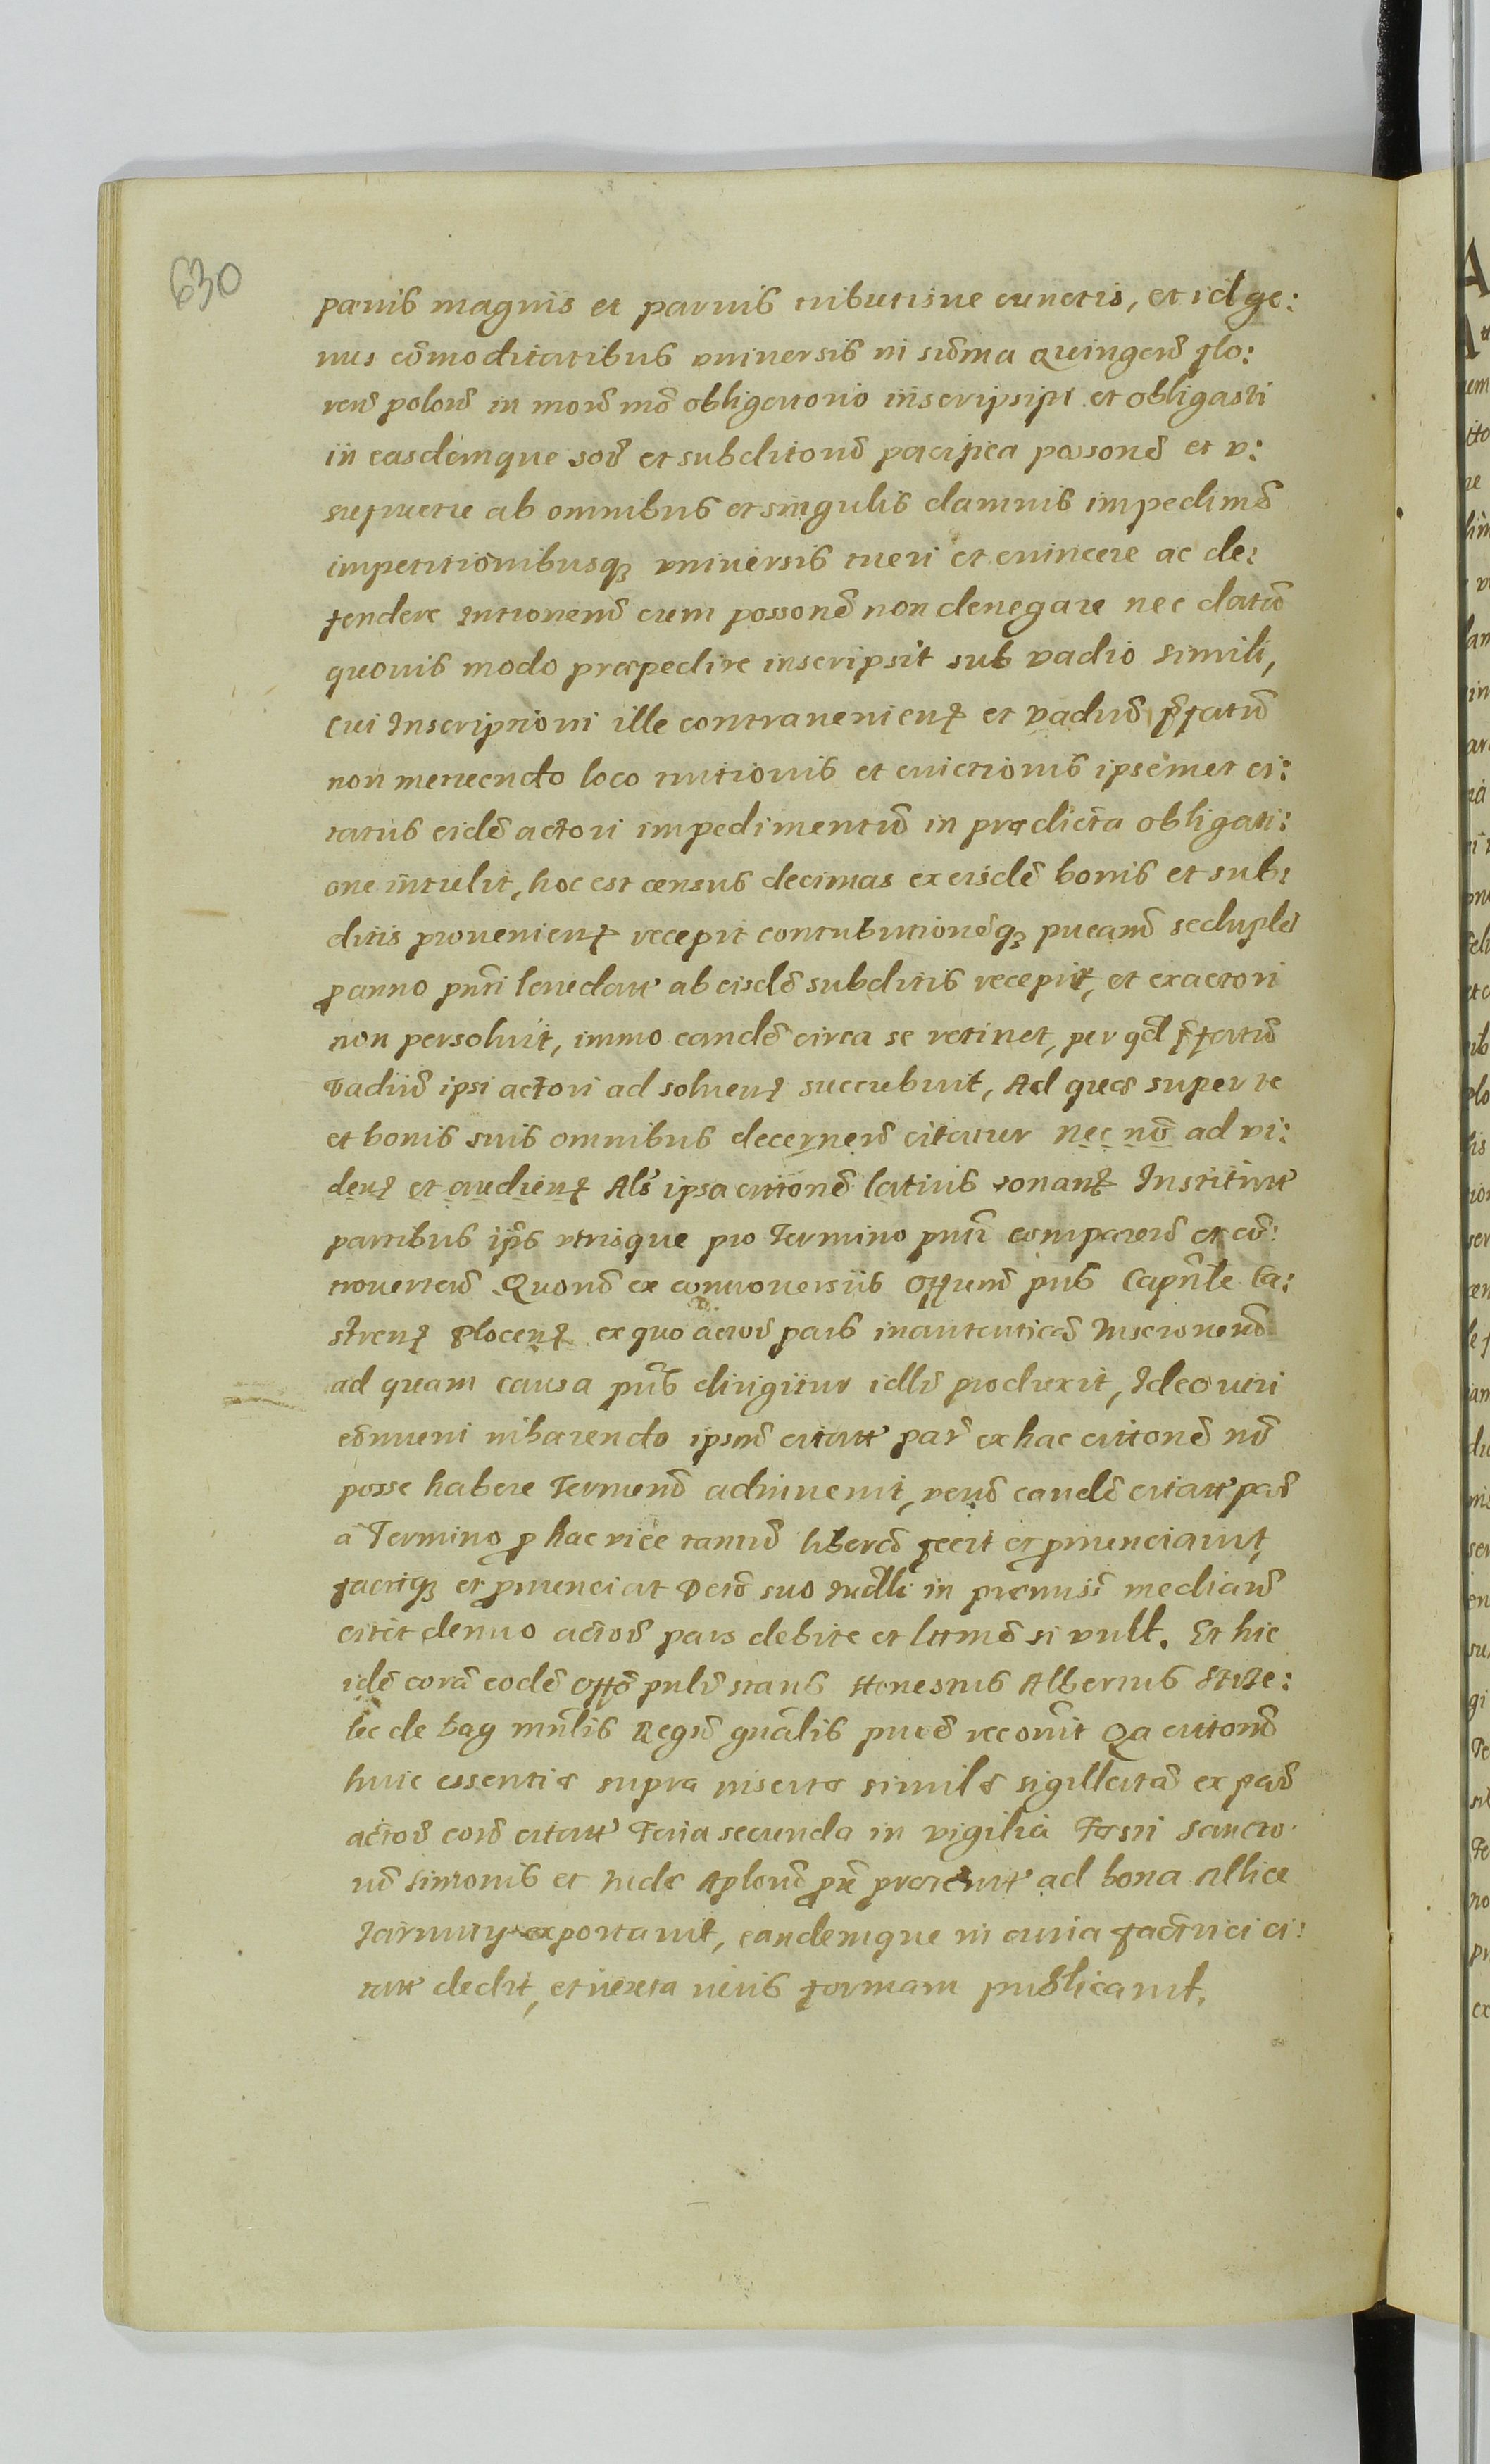 630
pænis magnis et paruis tributisue cunctis, et id ge:
nus cõmoditatibus vniuersis in sũma Quingen̄ flo:
ren̄ polon̄ in mon̄ mõ obligatorio inscripsist et obligasti
in easdemque sor̄ et subditorũ pacifica possonẽ et v:
sufructu ab omnibus et singulis damnis impedimẽ
impetitionibusq3 vniuersis tueri et euincere ac de:
fendere Intromen̄ cum possonẽ non denegare nec datũ
quouis modo præpedire inscripsit sub vadio simili,
Cui Inscriptioni ille contraueniens et vadiũ p̃fatũ
non metuendo loco tuitionis et euictionis ipsemet ci:
tatus eidẽ actori impedimentũ in prædicta obligati:
one intulit, hoc est census decimas ex eisdẽ bonis et sub:
ditis prouenien̄ recepit contributionẽq3 pucam̄ seduplẽ
p anno pñti leuedatt ab eisdẽ subditis recepit, et exactori
non persoluit, immo eandẽ circa se retinet, per qd p̃fatũ
vadiũ ipsi actori ad soluen̄ succubuit, Ad quæ super te
et bonis suis omnibus decernen̄ citatur nec nõ ad vi:
den̄ et audien̄ Als ipsa cittonẽ latius sonan̄ Institutt
partibus ip̃s vtrisque pro Termino pñti comparen̄ et cõ:
trouerten̄ Quon̄ ex controuersiis Offum̄ pñs Capñle Ca:
stren̄ Plocen̄ ex quo actor̄ pars inautenticã Inscronem̄
ad quam causa pñs dirigitur idlũ produxit, Ideo iuri
cõmuni inhærendo ipsam̄ citatt par̄ ex hac cittonẽ nõ
posse habere Terminũ adinuenit, verũ eandẽ citatt par̄
a Termino p hac vice tantũ liberã fecit et pnunciauit,
facitq3 et pnunciat Dcrõ suo Iudlli in premiss mediañ
citet denuo actor̄ pars debite et lttmẽ si vult. Et hic
idẽ corã eodẽ Offõ pnlr̄ stans Honestus Albertus Strze:
lec de bag mñlis Regñ gnãlis pucẽ recouit Qa cittonẽ
huic essentiæ supra insertæ similẽ sigillatã ex par̄
actor̄ corã citatt Feria secunda in vigilia Festi Sancto:
rũ Simonis et Iudæ Aplorũ px̃ præteritt ad bona Allice
Iarnuty exportauit, eandemque in curia factrici ci:
tatt dedit, et iuxta iuris formam publicauit.